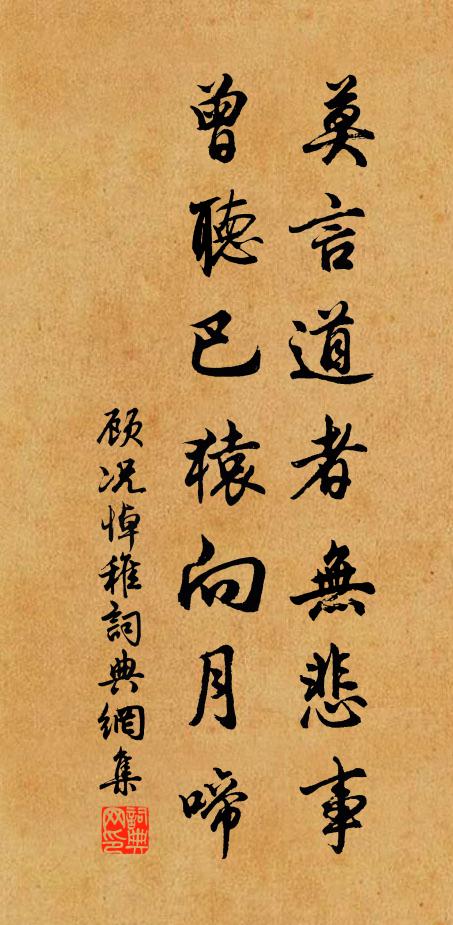 莫言道者無悲事
曾聽巴猿向月啼
顧况悼稚詞典網集
詞典网印